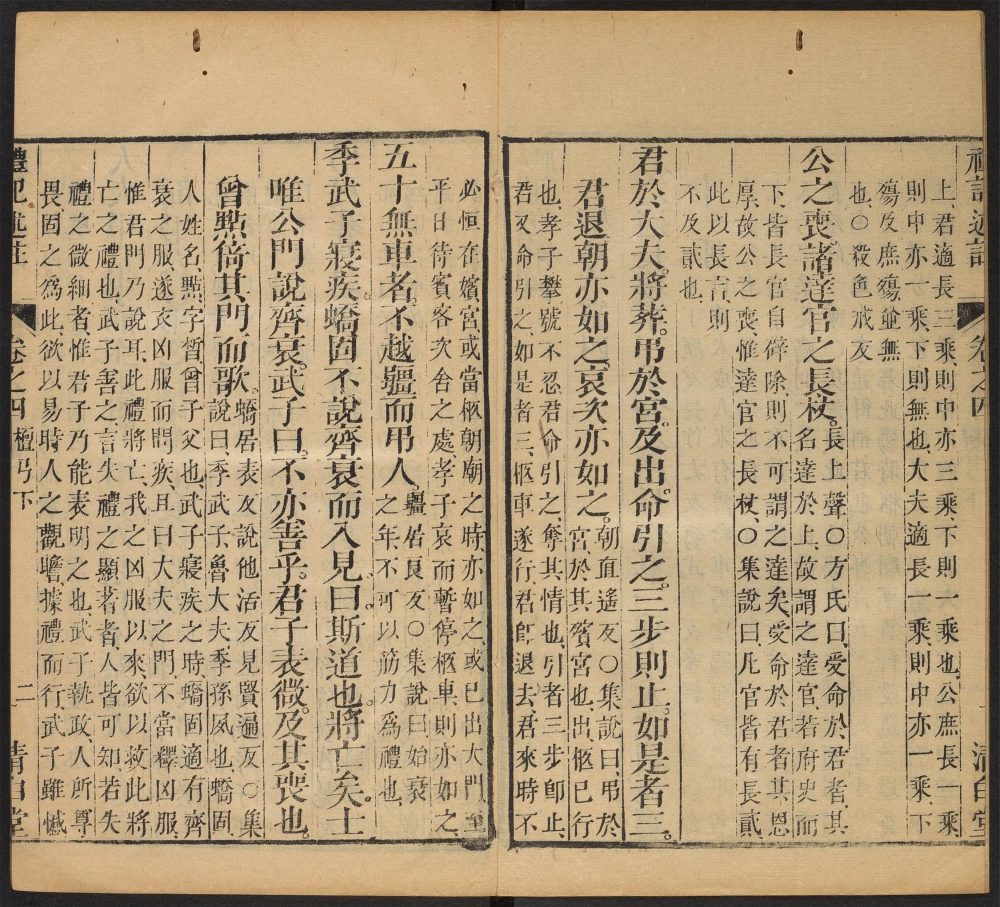 禮記述註 卷之四 清白堂
上君適長三乘則中亦三乘下則一乘也公庶長一乘
則中亦一乘下則無也大夫適長一乘則中亦一乘下
殤及庶殤並無
也○殺色戒反
公之喪諸達官之長杖
長上聲○方氏曰受命於君者其
名達於上故謂之達官若府史而
下皆長官自辟除則不可謂之達矣受命於君者其恩
厚故公之喪惟達官之長杖○集說曰凡官皆有長貳
此以長言則
不及貳也
君於大夫將葬弔於宮及出命引之三步則止如是者三
君退朝亦如之哀次亦如之
朝直遙反○集說曰弔於
宮於其殯宮也出柩已行
也孝子攀號不忍君命引之奪其情也引者三步即止
君又命引之如是者三柩車遂行君即退去君來時不
必恒在殯宮或當柩朝廟之時亦如之或已出大門至
平日待賓客次舍之處孝子哀而暫停柩車則亦如之
五十無車者不越疆而弔人
疆居良反○集說曰始衰
之年不可以筋力為禮也
季武子寢疾蟜固不說齊衰而入見曰斯道也將亡矣士
唯公門說齊衰武子曰不亦善乎君子表微及其喪也
曾點倚其門而歌
蟜居表反說他活反見賢遍反○集
說曰季武子魯大夫季孫夙也蟜固
人姓名點字晳曾子父也武子寢疾之時蟜固適有齊
衰之服遂衣凶服而問疾且曰大夫之門不當釋凶服
惟君門乃說耳此禮將亡我之凶服以來欲以救此將
亡之禮也武子善之言失禮之顯著者人皆可知若失
禮之微細者惟君子乃能表明之也武子執政人所尊
畏固之為此欲以易時人之觀瞻據禮而行武子雖憾
禮記述註 卷之四 檀弓下 二 清白堂